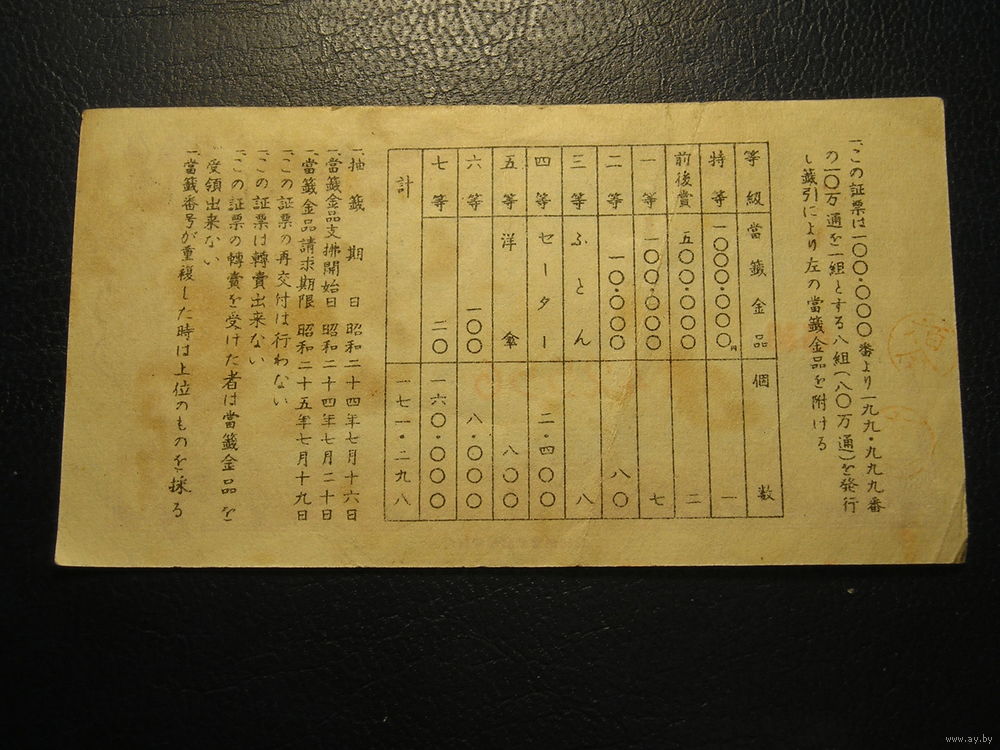 一、この証票は一〇〇・〇〇〇番より一九九・九九九番
の一〇万通を一組とする八組(八〇万通)を発行
し籤引により左の當籤金品を附ける
等級 當籤金品 個数
特等 一・〇〇〇・〇〇〇円 一
前後賞 五〇・〇〇〇 二
一等 一〇〇・〇〇〇 七
二等 一〇・〇〇〇 八〇
三等 ふとん 八
四等 セーター 二・四〇〇
五等 洋傘 八〇〇
六等 一〇〇 八・〇〇〇
七等 二〇 一六〇・〇〇〇
計 一七一・二九八
一、抽籤期日 昭和二十四年七月十六日
一、當籤金品支拂開始日 昭和二十四年七月二十日
一、當籤金品請求期限 昭和二十五年七月十九日
一、この証票の再交付は行わない
一、この証票は轉賣出来ない
一、この証票の轉賣を受けた者は當籤金品を
受領出来ない
一、當籤番号が重複した時は上位のものを採る
www.ay.by